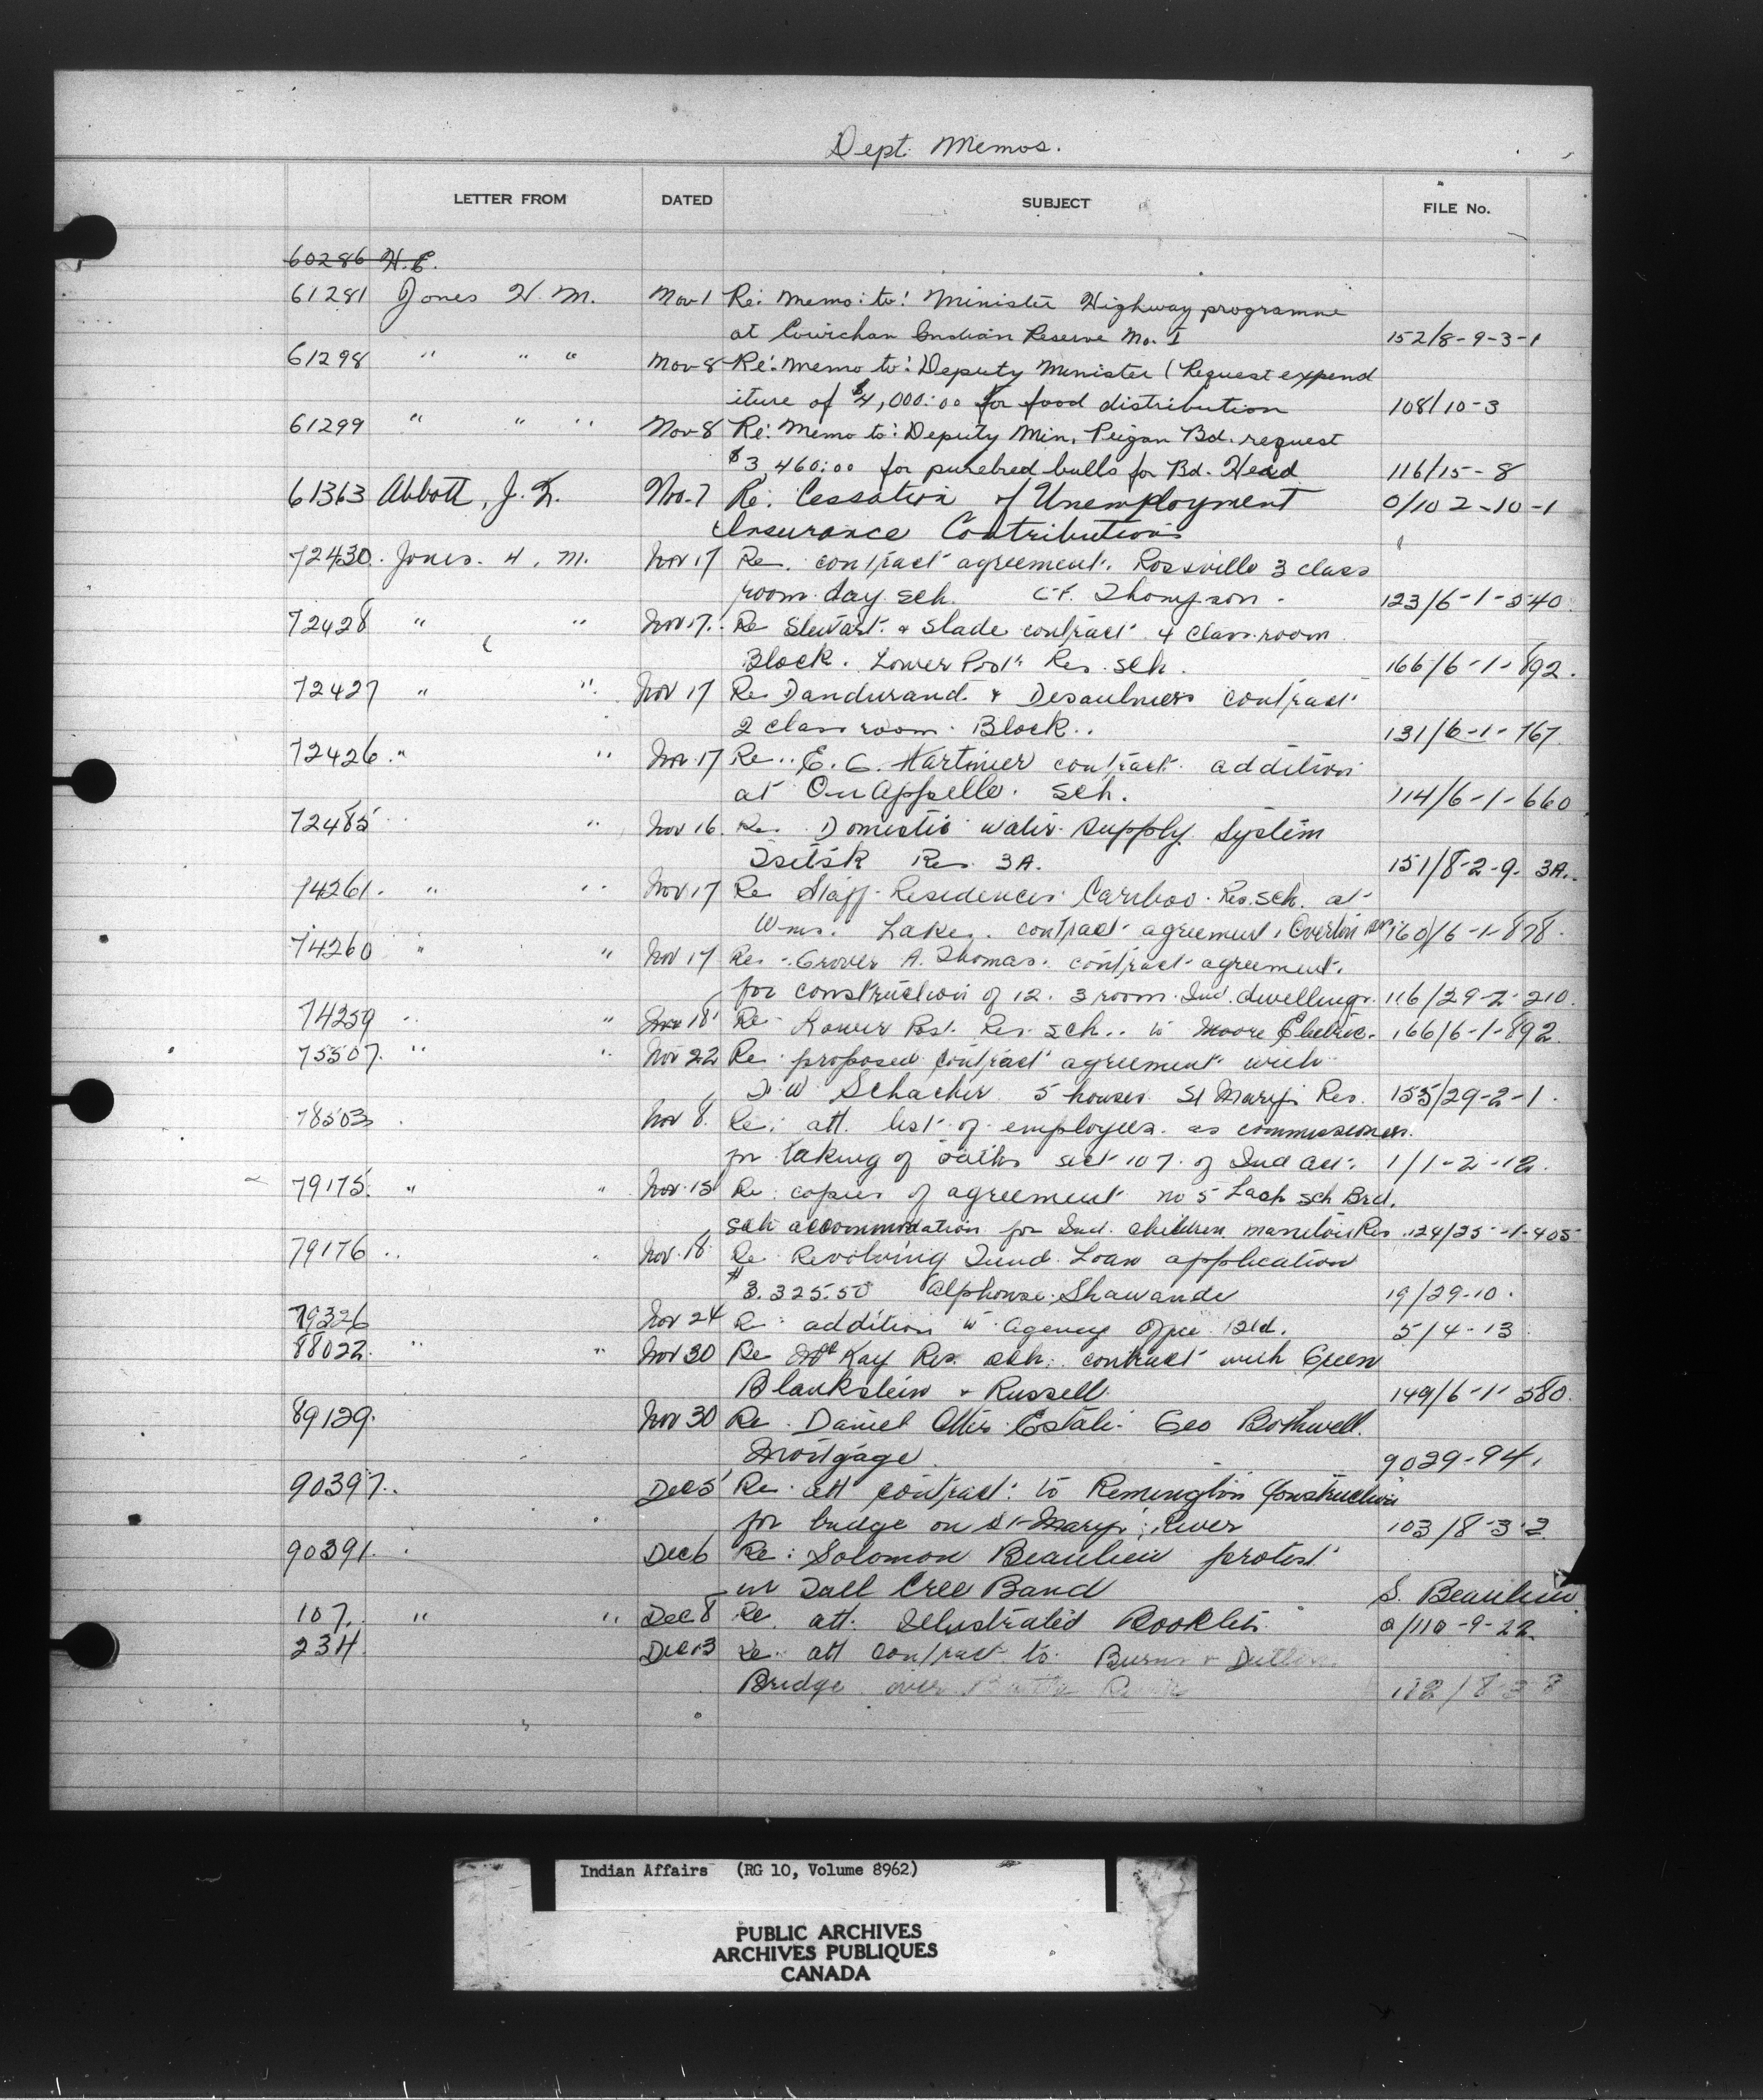 Dept. Memos.
LETTER FROM DATED SUBJECT FILE No.
60286 H.E.
61281 Jones H. M. Nov 1 Re: Memo: to: Minister Highway programme
at Cowichan Indian Reserve No. I 152/8-9-3-1
61298 " " " Nov 8 Re: Memo to: Deputy Minister (Request expend
iture of $4,000:00 for food distribution 108/10-3
61299 " " " Nov 8 Re: Memo to: Deputy Min. Peigan Bd. request
$3,460:00 for purebred bulls for Bd. Head 116/15-8
61363 Abbott, J. Nov. 7 Re: Cessation of Unemployment 0/102-10-1
Insurance Contributions
72430. Jones. H. M. Nov 17 Re. contract agreement. Rossville 3 class
room day sch. C.F. Thompson. 123/6-1-540.
72428 " " Nov 17. Re Stewart & Slade contract 4 class room
Block. Lower Post Res. Sch. 166/6-1-892.
72427 " " Nov 17 Re Dandurand & Desaulniers contract
2 class room Block.. 131/6-1-767
72426. " " Nov. 17 Re.. E. G. Hartmier contract addition
at Qu Appelle. Sch. 114/6-1-660
72485 " Nov 16. Re. Domestic water supply System
Tsitsk Res. 3A. 151/8-2-9. 3A.
74261. " " Nov 17 Re Staff Residences Cariboo. Res. Sch. at
Wms. Lake. contract agreement, Overlin 160/6-1-878.
74260 " " Nov 17 Re. Grover A. Thomas. contract agreement.
for construction of 12. 3 room. Ind. dwellings. 116/29-2-210.
74259 " " Nov 18 Re Lower Post. Res. sch.. to Moore Electric. 166/6-1-892.
75507. " " Nov 22 Re: proposed contract agreement with
W Schacher 5 houses St Marys Res. 155/29-2-1.
78503 Nov 8. Re: att. list of employees as commissioners.
for taking of oaths sect 107. of Ind Act. 1/1-2-12.
79175. " " Nov. 15 Re: copies of agreement no 5 Lash Sch Brd.
Sch accommodation for Ind. children Res. 124/25-1-405
79176 " " Nov. 18 Re Revolving Fund Loan application
$3.325.50 Alphonse Shawande 19/29-10.
79326 Nov 24 Re: addition to Agency Office Bld. 5/4-13
88022. " " Nov 30 Re McKay Res. sch. contract with Green
Blankstein & Russell. 149/6-1-580.
89129. Nov 30 Re. Daniel Otter Estate. Geo Bothwell.
Mortgage. 9029-94.
90397.. Dec 5 Re. att contract: to Remington Construction
for bridge on St-Marys River 103/8-3-2
90391. Dec 6 Re: Solomon Beaulieu protest
in Tall Cree Band S. Beaulieu
107. " " Dec 8 Re. att. Illustrated Booklets. a/110-9-22.
234. Dec 13 Re. att contract to Burns &
Bridge over 112/8-3
Indian Affairs (RG 10, Volume 8962)
PUBLIC ARCHIVES
ARCHIVES PUBLIQUES
CANADA